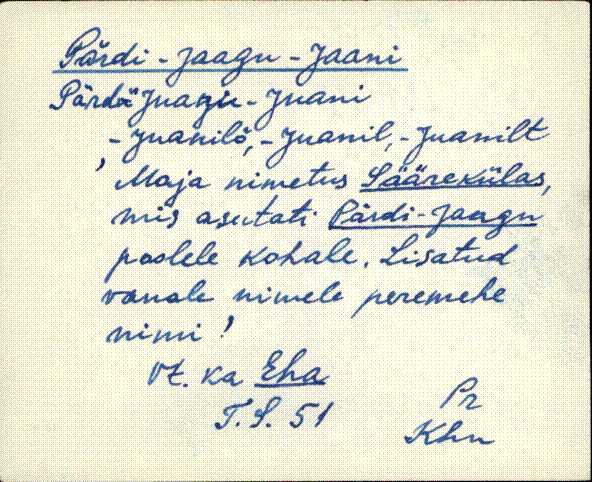 Pärdi-Jaagu-Jaani
Pärdä Juagu-Juani
-Juanilõ, -Juanil, -Juanilt
'Maja nimetus Säärekülas,
mis asutati Pärdi-Jaagu
poolele kohale. Lisatud
vanale nimele peremehe
nimi'
Vt. ka Eha
T.S. 51
Pr
Khn